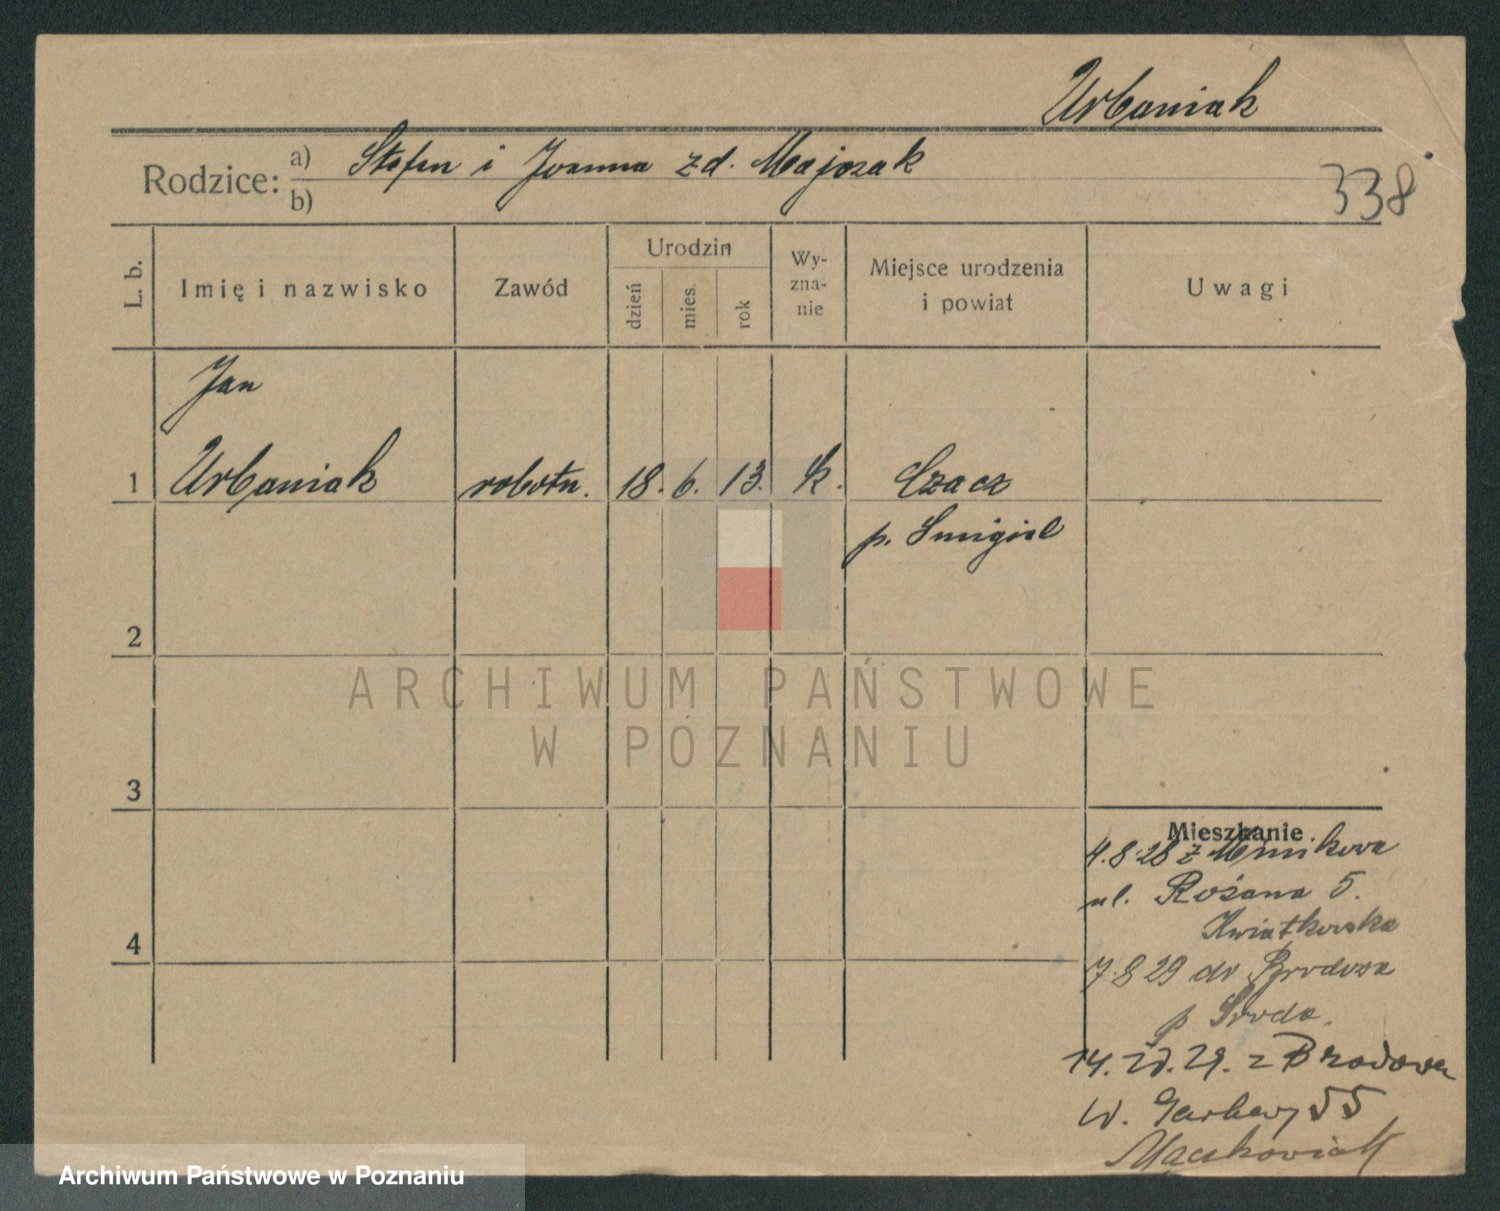 Urbaniak
Rodzice: a) Stefan i Joanna zd. Majczak
b)
338
L. b.
Imię i nazwisko
Zawód
Urodzin
dzień
mies.
rok
Wy-
zna-
nie
Miejsce urodzenia
i powiat
Uwagi
Jan
1 Urbaniak robotn. 18. 6. 13. k. Czacz
p. Smigiel
2
ARCHIWUM PAŃSTWOWE
W POZNANIU
3
Mieszkanie
4.8.28 z
ul. Rożana 5.
Kwiatkowska
4
7.8 29 do Brodowa
p Sroda.
14. 29. z Brodowa
W. Garbary 55
Maćkowiak
Archiwum Państwowe w Poznaniu